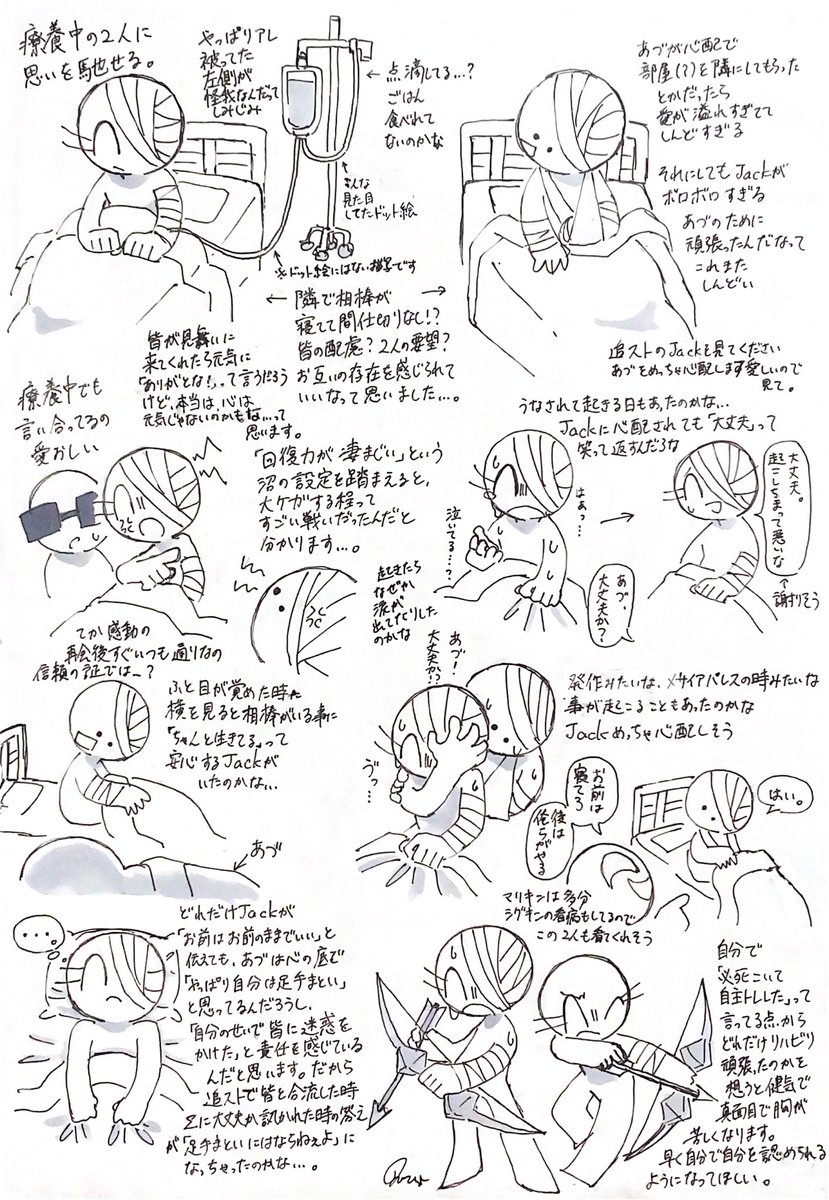 療養中の2人に
思いを馳せる。
やっぱりアレ
被ってた
左側が
怪我なんだって
しみじみ
← 点滴してる…?
ごはん
食べれて
ないのかな
こんな
見た目
してたドット絵
※ドット絵にはない描写です
あづが心配で
部屋(?)を隣にしてもらった
とかだったら
愛が溢れすぎてて
しんどすぎる
それにしてもJackが
ボロボロすぎる
あづのために
頑張ったんだなって
これまた
しんどい
← 隣で相棒が →
寝てて間仕切りなし!?
皆の配慮?2人の要望?
お互いの存在を感じられて
いいなって思いました…。
皆が見舞いに
来てくれたら元気に
「ありがとな!」って言うだろう
けど、本当は、心は
元気じゃないのかもな…って
思います。
追ストのJackを見てください
あづをめっちゃ心配します愛しいので
見て。
療養中でも
言い合ってるの
愛おしい
「回復力が凄まじい」という
沼の設定を踏まえると、
大ケガする程って
すごい戦いだったんだと
分かります…。
てか感動の
再会後すぐいつも通りなの
信頼の証では…?
うなされて起きる日もあったのかな…
Jackに心配されても「大丈夫」って
笑って返すんだろな
はあっ…
泣いてる…?
あづ、
大丈夫か?
大丈夫。
起こしちまって悪いな
謝りそう
起きたら
なぜか
涙が
出てたりした
のかな
ふと目が覚めた時に
横を見ると相棒がいる事に
「ちゃんと生きてる」って
安心するJackが
いたのかな…
あづ
あづ!
大丈夫か!?
うっ…
発作みたいな、メサイアパレスの時みたいな
事が起こることもあったのかな
Jackめっちゃ心配しそう
お前は
寝てろ
後は
俺らがやる
はい。
マリキンは多分
シグキンの看病もしてるので
この2人も看てくれそう
…
どれだけJackが
「お前はお前のままでいい」と
伝えても、あづは心の底で
「やっぱり自分は足手まとい」
と思ってるんだろうし、
「自分のせいで皆に迷惑を
かけた」と責任を感じている
んだと思います。だから
追ストで皆と合流した時
Σに大丈夫か訊かれた時の答え
が「足手まといにはならねぇよ」に
なっちゃったのかな…。
自分で
「必死こいて
自主トレした」って
言ってる点から
どれだけリハビリ
頑張ったのかを
想うと健気で
真面目で胸が
苦しくなります。
早く自分で自分を認められる
ようになってほしい。